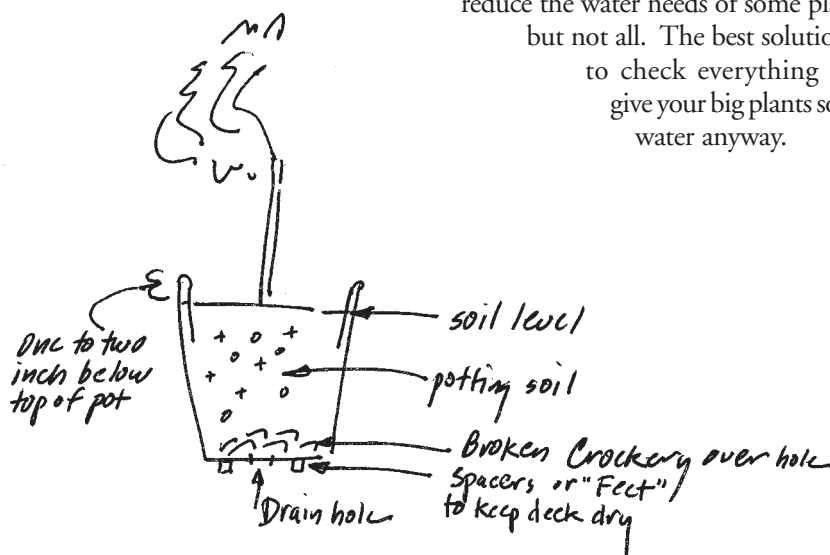 reduce the water needs of some pla
but not all. The best solutio
to check everything
give your big plants so
water anyway.
One to two
inch below
top of pot
soil level
potting soil
Broken Crockery over hole
Spacers or "Feet"
to keep deck dry
Drain hole